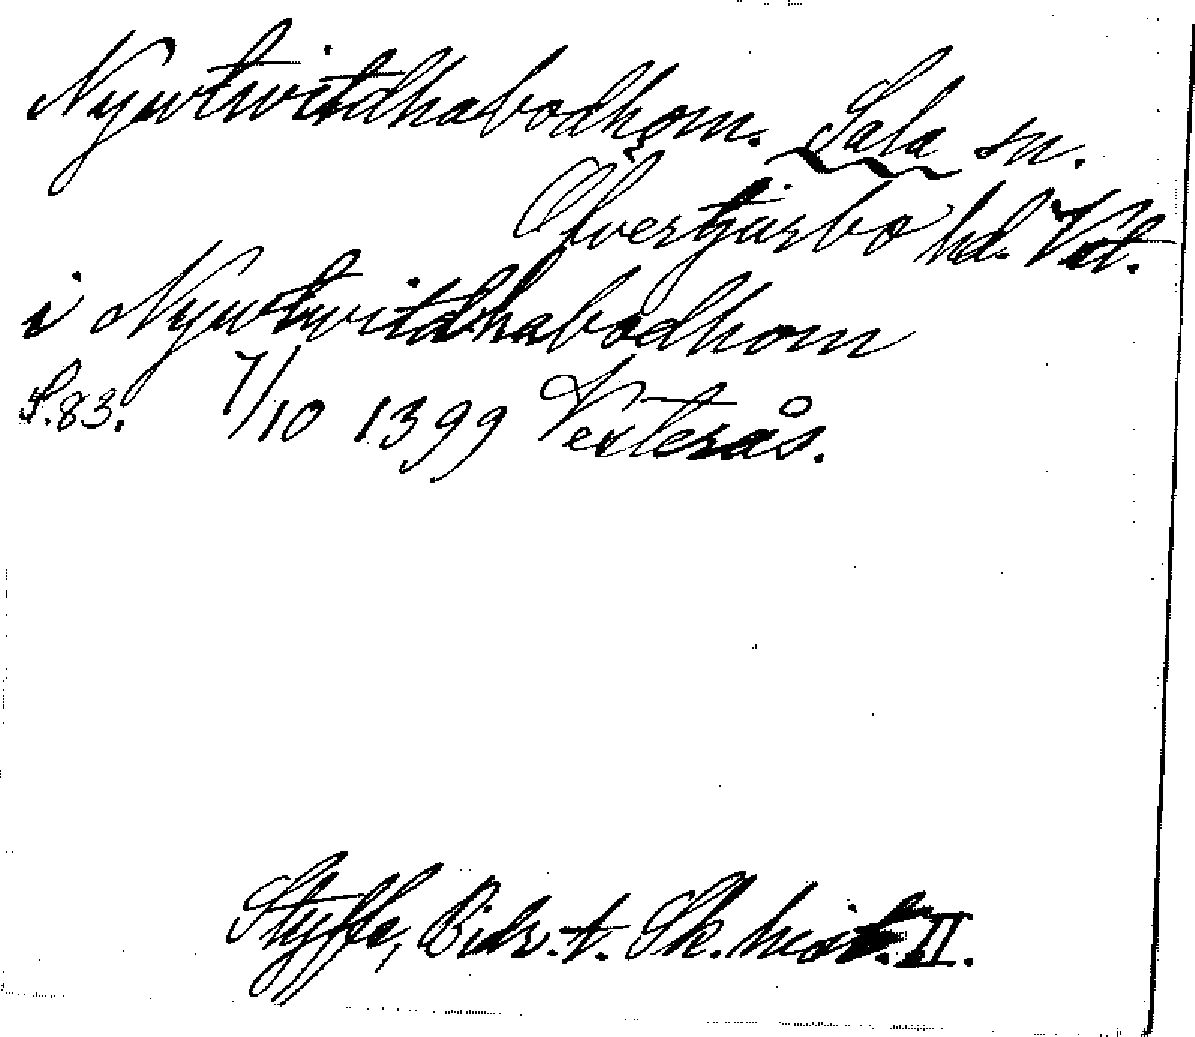 Nywtwitdhabodhom. Sala sn.
Övertjurbo hd. Vst.
i Nywtwitdhabodhom
S. 83. 7/10 1399 Vesterås.
Styffe, Bidr. t. Sk. hist. II.